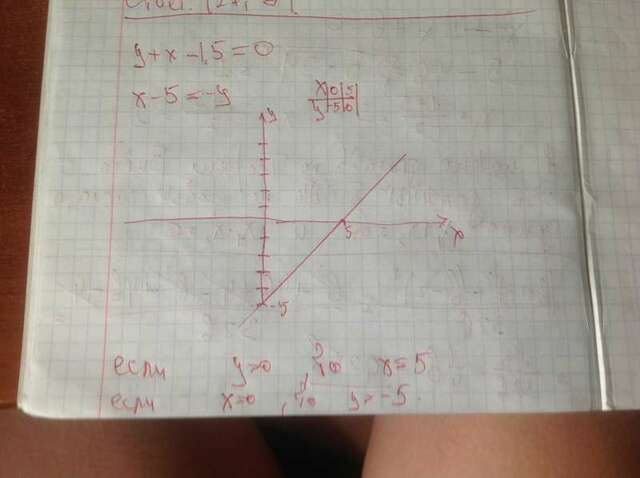 y+x-1,5=0
x-5=-y
x|0|5|
y|-5|0|
y
5
x
-5
если y=0 x=5
если x=0 y=-5